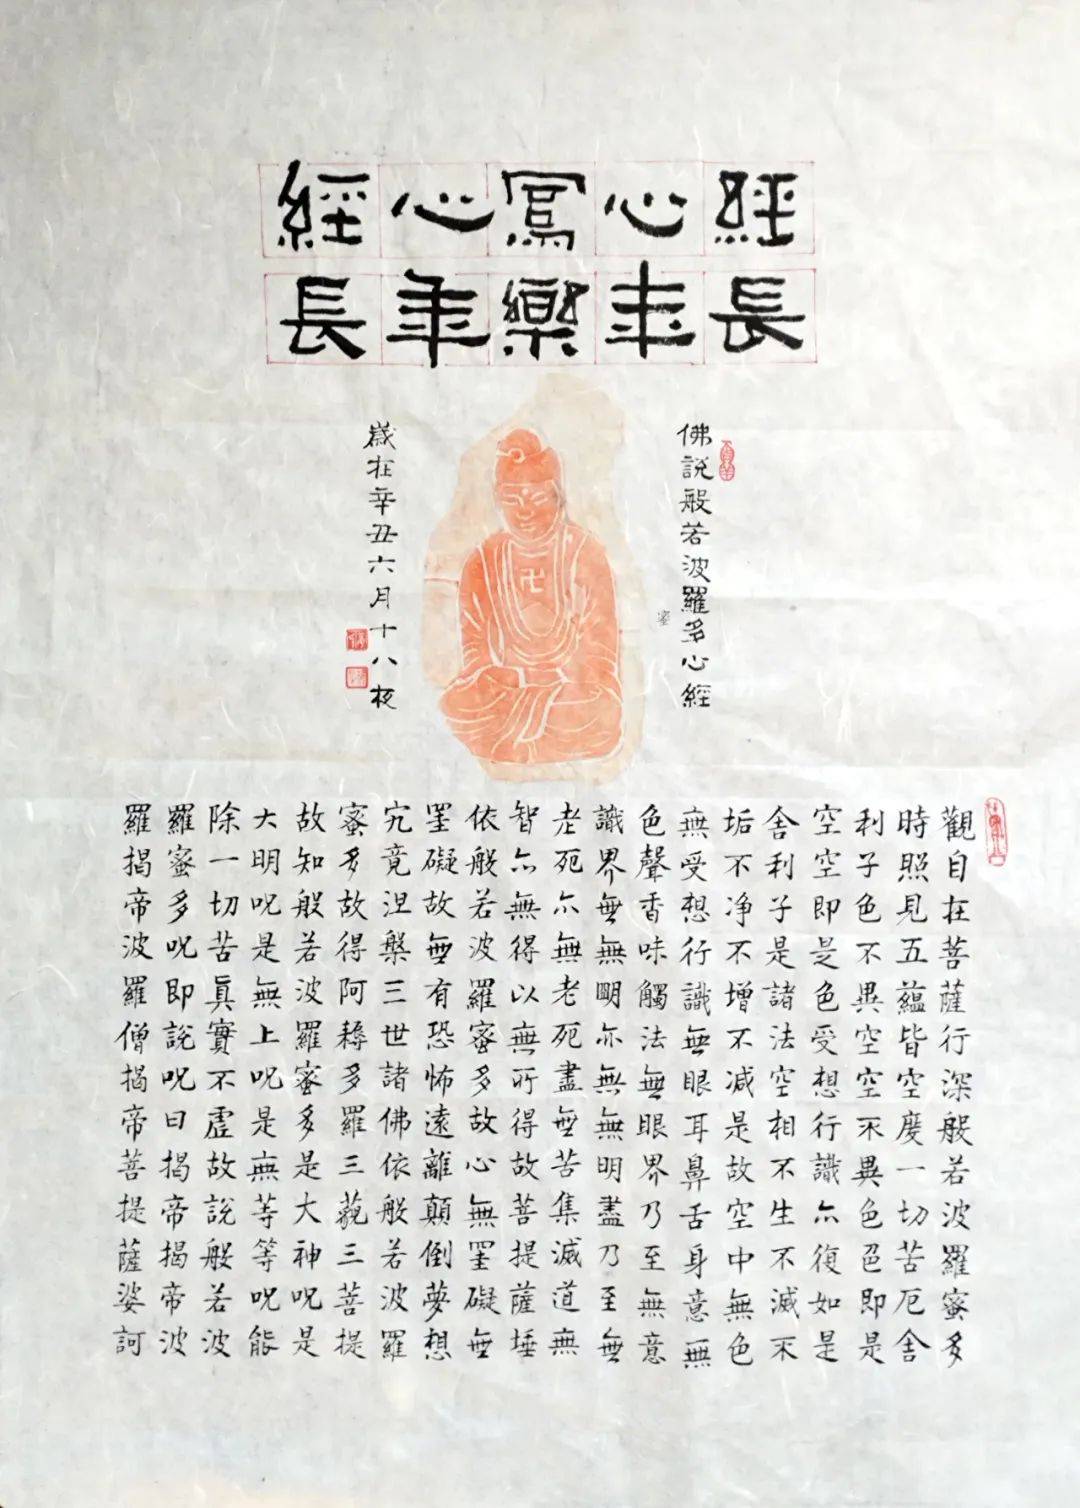 經心寫心經
長年樂年長
佛說般若波羅多心經
蜜
歲在辛丑六月十八夜
觀自在菩薩行深般若波羅蜜多
時照見五蘊皆空度一切苦厄舍
利子色不異空空不異色色即是
空空即是色受想行識亦復如是
舍利子是諸法空相不生不滅不
垢不净不增不减是故空中無色
無受想行識無眼耳鼻舌身意無
色聲香味觸法無眼界乃至無意
識界無無明亦無無明盡乃至無
老死亦無老死盡無苦集滅道無
智亦無得以無所得故菩提薩埵
依般若波羅蜜多故心無罣礙無
罣礙故無有恐怖遠離顛倒夢想
究竟涅槃三世諸佛依般若波羅
蜜多故得阿耨多羅三藐三菩提
故知般若波羅蜜多是大神呪是
大明呪是無上呪是無等等呪能
除一切苦眞實不虛故說般若波
羅蜜多呪即說呪曰揭帝揭帝波
羅揭帝波羅僧揭帝菩提薩婆訶